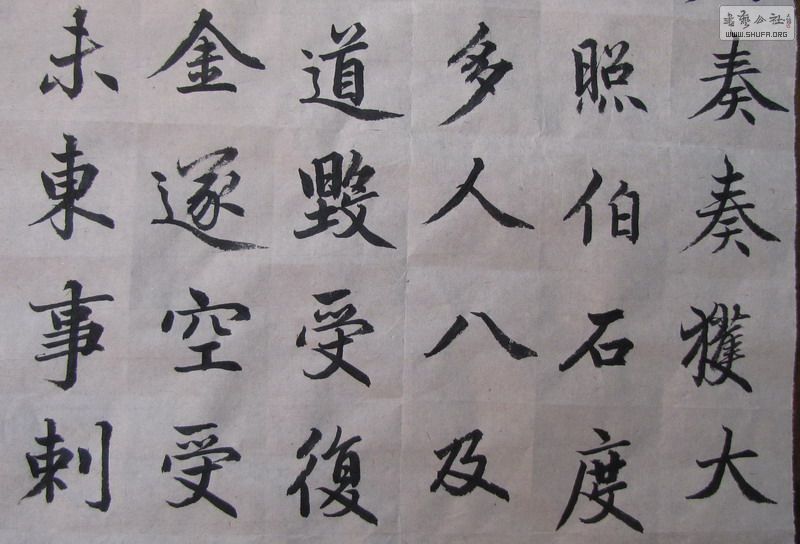 奏奏獲大
照伯石度
多人八及
道毀受復
金遂空受
未東事刺
书艺公社
WWW.SHUFA.ORG